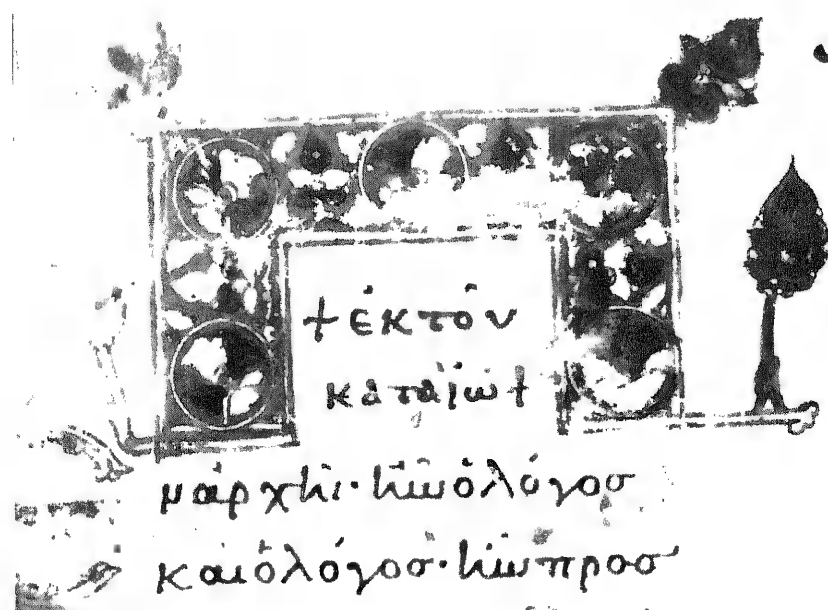 + ἐκ τοῦ
κατὰ ἰω +
ν ἀρχῆι· ἦν ὁ λόγοσ
καὶ ὁ λόγοσ· ἦν πρὸσ